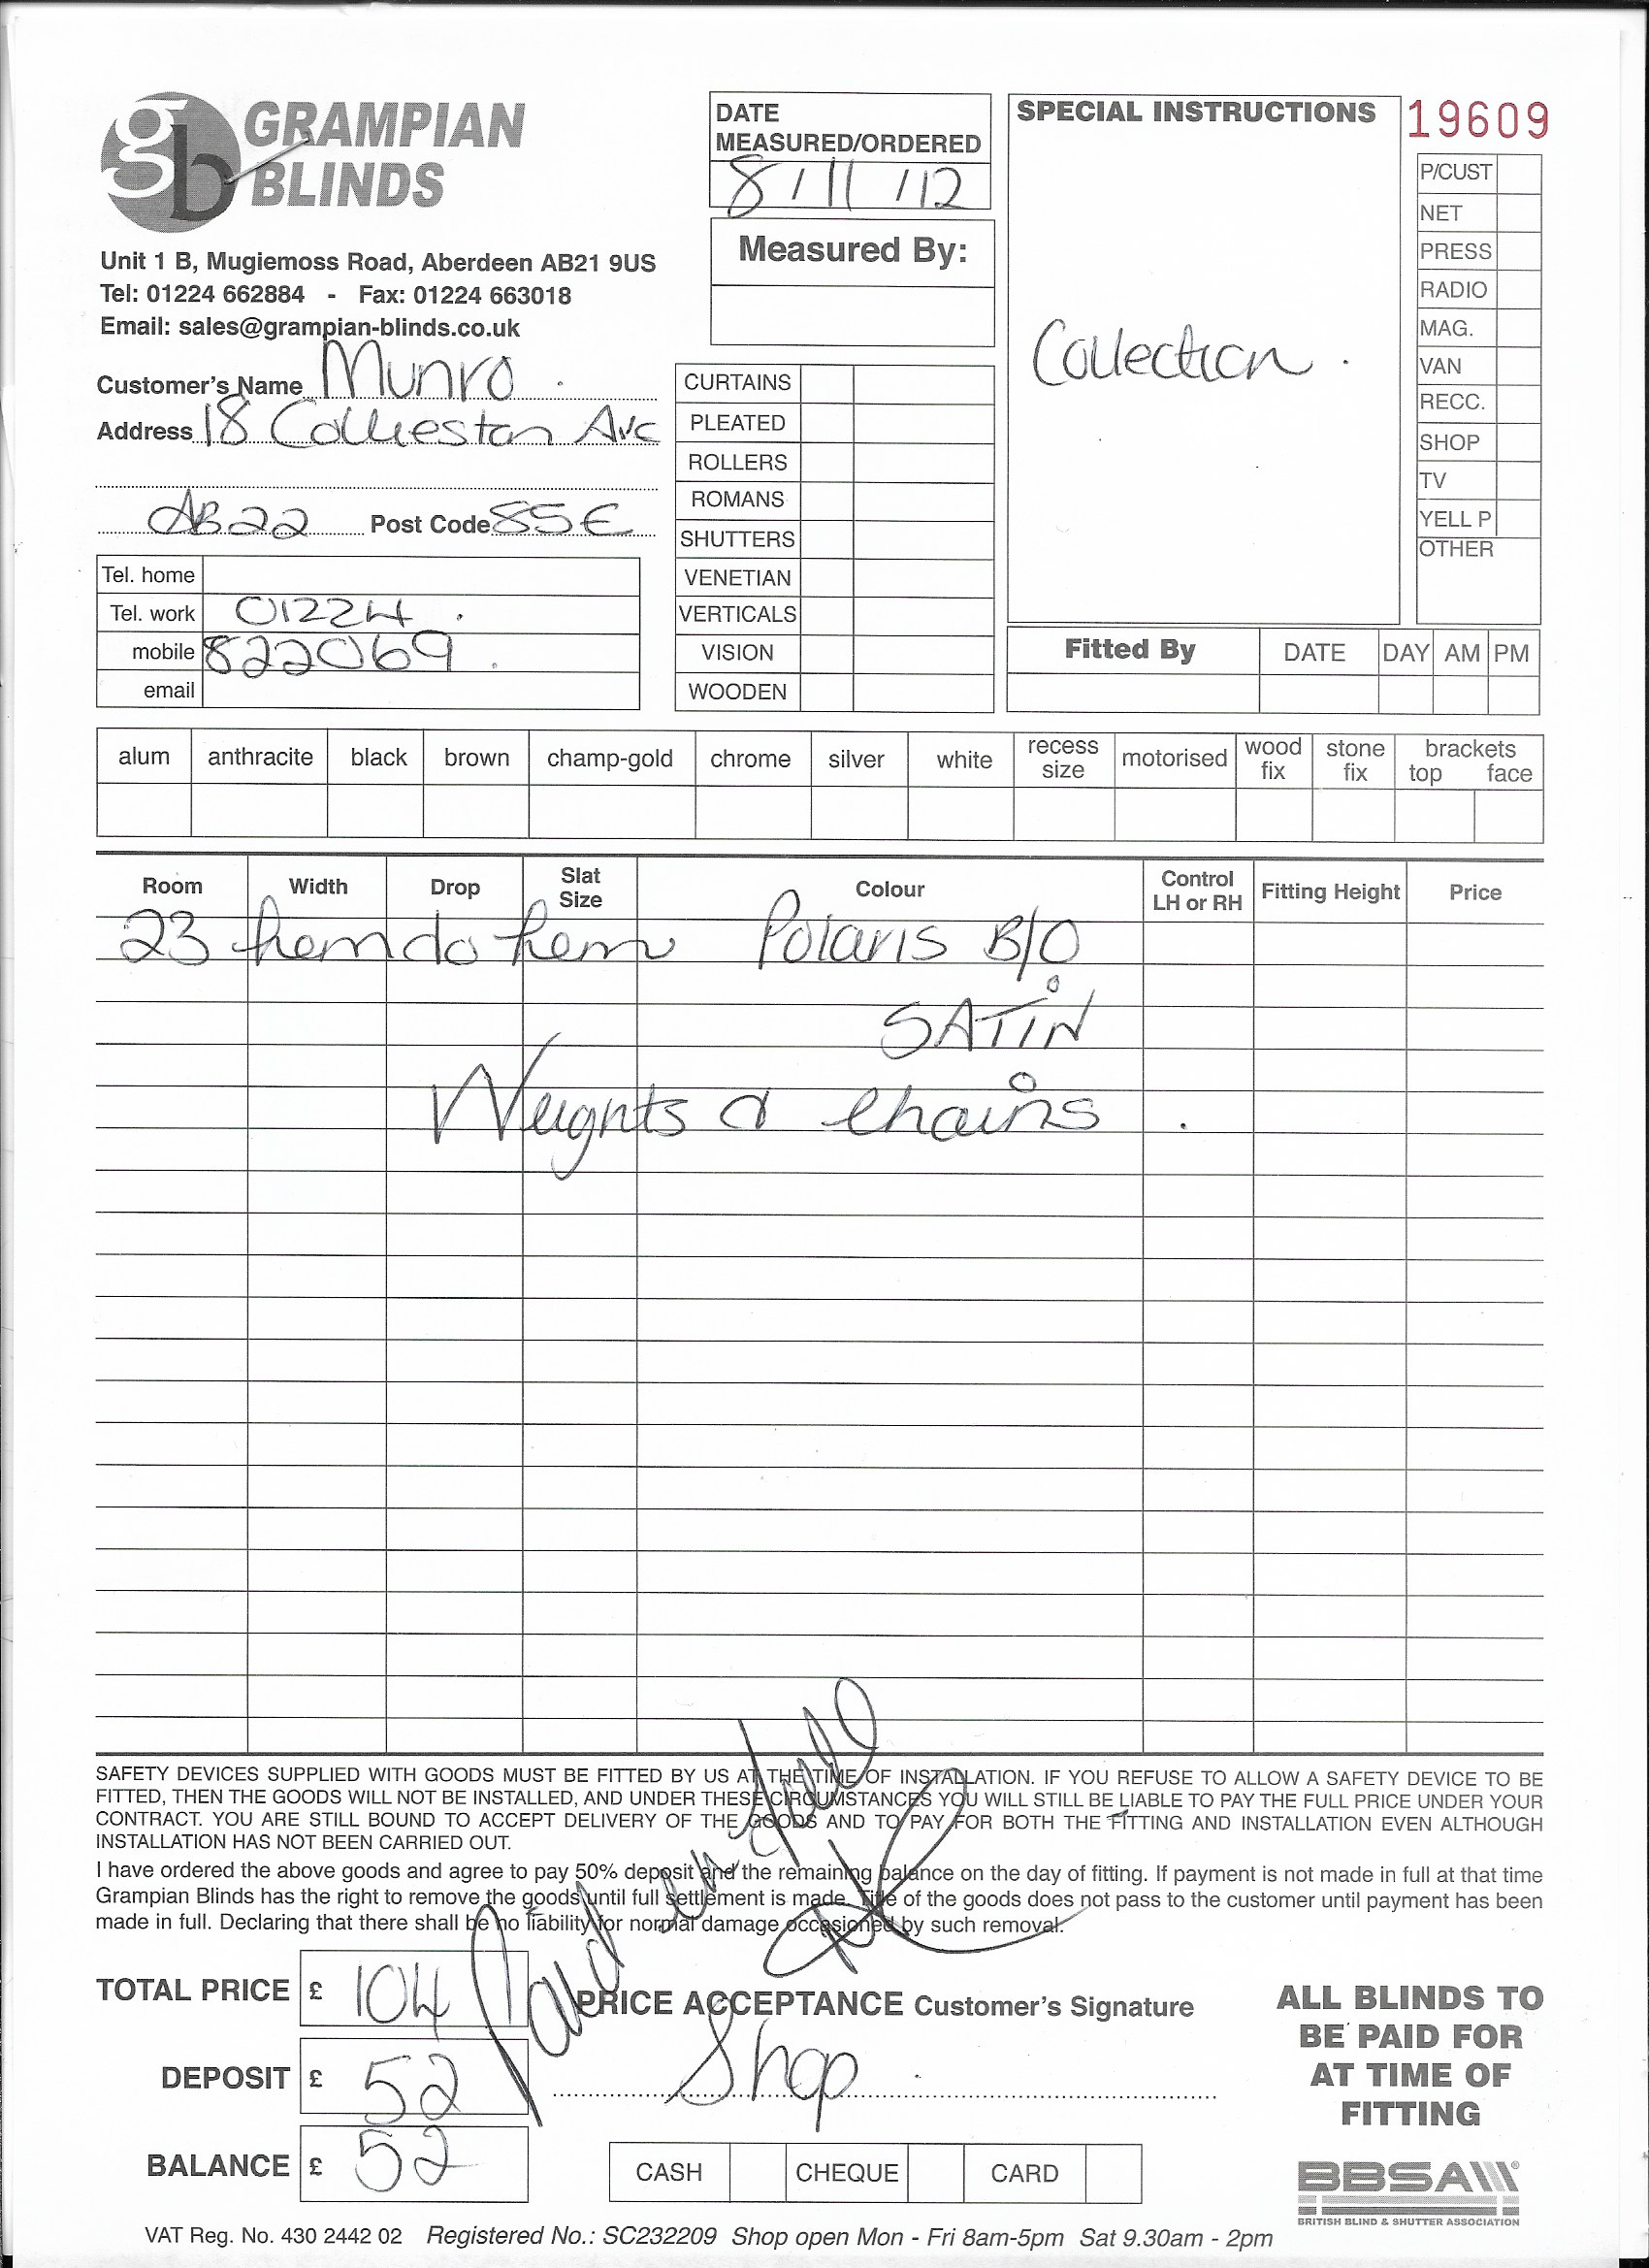 gb GRAMPIAN
BLINDS
Unit 1 B, Mugiemoss Road, Aberdeen AB21 9US
Tel: 01224 662884 - Fax: 01224 663018
Email: sales@grampian-blinds.co.uk
Customer's Name Munro
Address 18 Collieston Ave
AB22 Post Code 8SE
Tel. home
Tel. work 01224
mobile 822069
email
DATE
MEASURED/ORDERED
8/11/12
Measured By:
CURTAINS
PLEATED
ROLLERS
ROMANS
SHUTTERS
VENETIAN
VERTICALS
VISION
WOODEN
SPECIAL INSTRUCTIONS
Collection.
19609
P/CUST
NET
PRESS
RADIO
MAG.
VAN
RECC.
SHOP
TV
YELL P
OTHER
Fitted By DATE DAY AM PM
alum anthracite black brown champ-gold chrome silver white recess size motorised wood fix stone fix brackets top face
Room Width Drop Slat Size Colour Control LH or RH Fitting Height Price
23 hem to hem Polaris B/O
SATIN
Weights & chains.
SAFETY DEVICES SUPPLIED WITH GOODS MUST BE FITTED BY US AT THE TIME OF INSTALLATION. IF YOU REFUSE TO ALLOW A SAFETY DEVICE TO BE
FITTED, THEN THE GOODS WILL NOT BE INSTALLED, AND UNDER THESE CIRCUMSTANCES YOU WILL STILL BE LIABLE TO PAY THE FULL PRICE UNDER YOUR
CONTRACT. YOU ARE STILL BOUND TO ACCEPT DELIVERY OF THE GOODS AND TO PAY FOR BOTH THE FITTING AND INSTALLATION EVEN ALTHOUGH
INSTALLATION HAS NOT BEEN CARRIED OUT.
I have ordered the above goods and agree to pay 50% deposit and the remaining balance on the day of fitting. If payment is not made in full at that time
Grampian Blinds has the right to remove the goods until full settlement is made. Title of the goods does not pass to the customer until payment has been
made in full. Declaring that there shall be no liability for normal damage occasioned by such removal.
Paid in full
TOTAL PRICE £ 104
DEPOSIT £ 52
BALANCE £ 52
PRICE ACCEPTANCE Customer's Signature
Shop
CASH CHEQUE CARD
ALL BLINDS TO
BE PAID FOR
AT TIME OF
FITTING
BBSA
BRITISH BLIND & SHUTTER ASSOCIATION
VAT Reg. No. 430 2442 02 Registered No.: SC232209 Shop open Mon - Fri 8am-5pm Sat 9.30am - 2pm